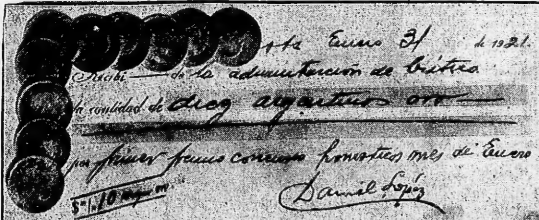 Enero 31 de 1921.
Recibí de la administración de Crítica
la cantidad de diez argentinos oro
por primer premio concurso pronósticos mes de Enero
Daniel López